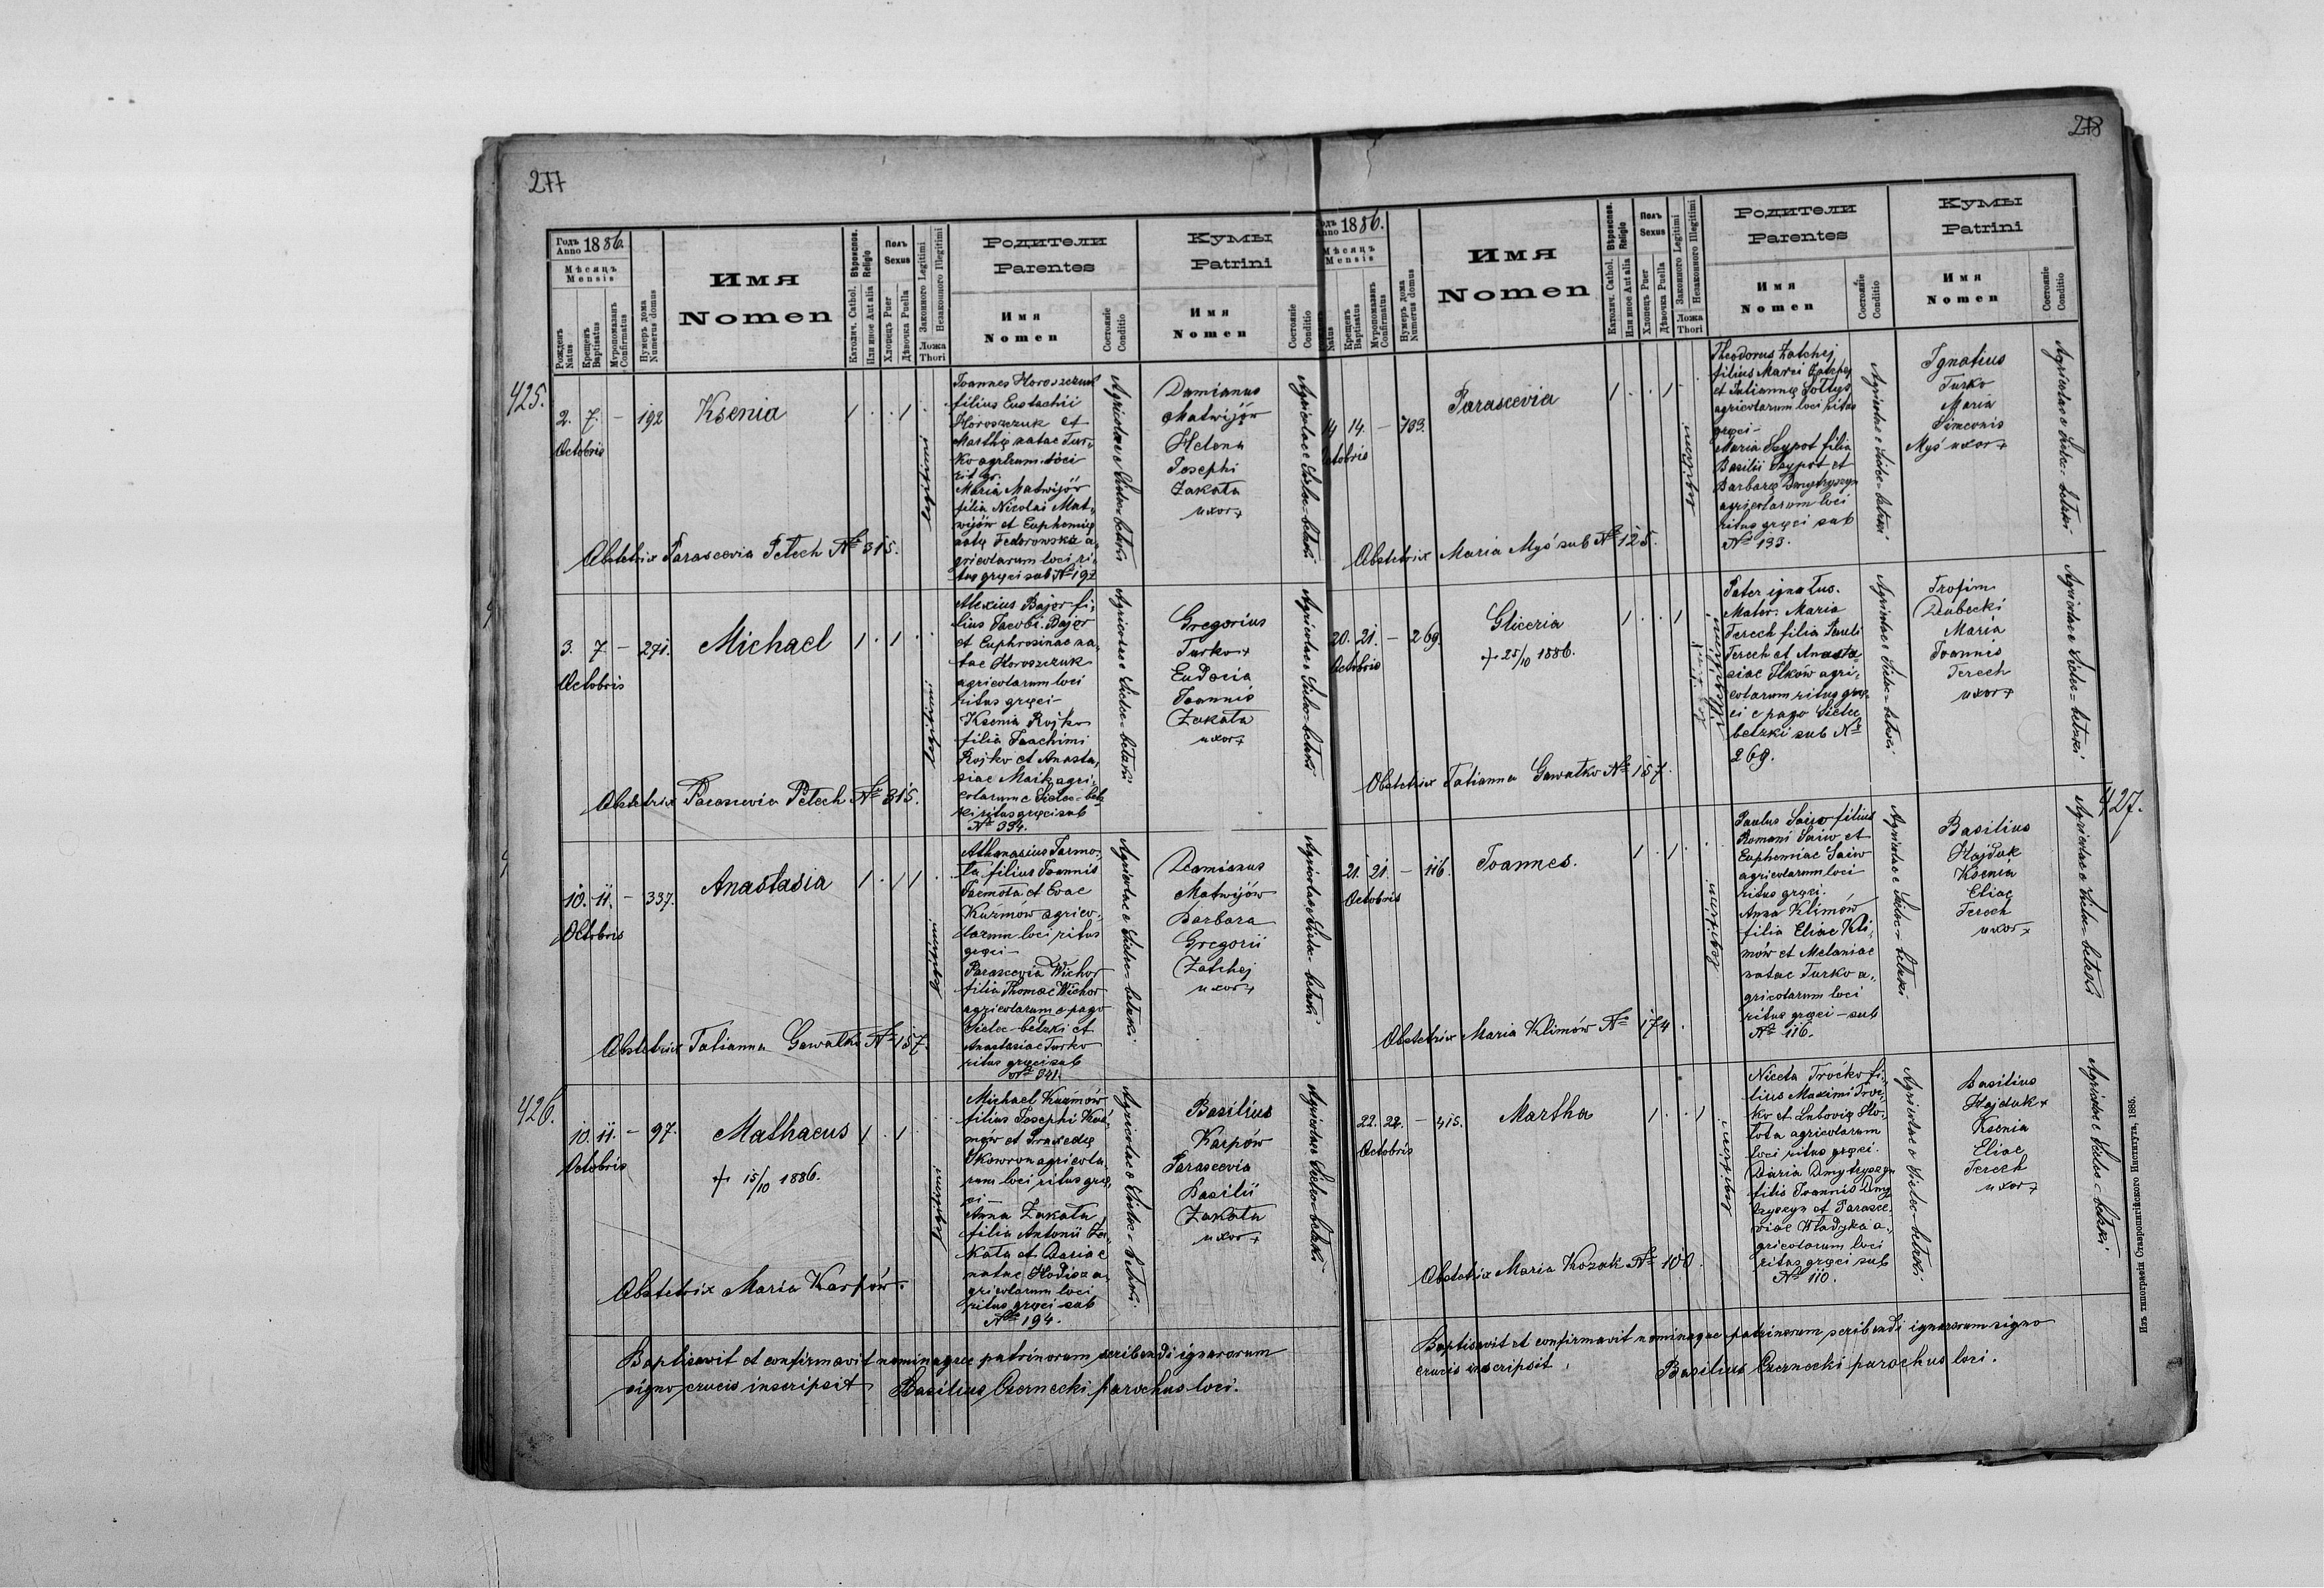 277
Годъ Anno 1886.
Мѣсяцъ
Mensis
Рожденъ Natus
Крещенъ Baptisatus
Мѵропомазанъ Confirmatus
Нумеръ дома Numerus domus
Имя
Nomen
Католич. Cathol. Вѣроиспов. Religio
Или иное Aut alia
Полъ
Sexus
Хлопецъ Puer
Дѣвочка Puella
Законного Legitimi
Незаконного Illegitimi
Ложа
Thori
Родители
Parentes
Имя
Nomen
Состояніе
Conditio
Кумы
Patrini
Имя
Nomen
Состояніе
Conditio
425.
2. 7. – 192
Octobris
Ksenia
1 . . 1 .
Legitimi
Joannes Horoszczuk
filius Eustachii
Horoszczuk et
Marthę natae Tur-
ko agrlrum loci
rit gr.
Maria Matwijów
filia Nicolai Mat-
wijów et Euphemię
natę Fedorowska a-
gricolarum loci ri-
tus gręci sub № 192
Agricolae e Sielec-betzki
Damianus
Matwijów
Helena
Josephi
Zakała
uxor +
Agricolae e Sielec-betzki
Obstetrix Parascevia Petech № 315.
3. 7. – 271.
Octobris
Michael
1 . 1 . .
Legitimi
Alexius Bajor fi-
lius Jacobi Bajor
et Euphrosinae na-
tae Horoszczuk
agricolarum loci
ritus gręci –
Ksenia Rojko
filia Joachimi
Rojko et Anasta-
siae Maik agri-
colarum e Sielec-betz
ki ritus gręci sub
№ 334.
Agricolae e Sielec-betzki
Gregorius
Turko +
Eudocia
Joannis
Zakała
uxor +
Agricolae e Sielec-betzki
Obstetrix Parascevia Petech № 315.
10. 11. – 337.
Octobris
Anastasia
1 . 1 1 .
Legitimi
Athanasius Jarmo-
ła filius Joannis
Jarmoła et Evae
Kuźmów agrico-
larum loci ritus
gręci –
Parascevia Wichor
filia Thomae Wichor
agricolarum e pago
Sielec-betzki et
Anastasiae Turko
ritus gręci sub
№ 341.
Agricolae e Sielec-betzki
Damianus
Matwijów
Barbara
Gregorii
Zatchej
uxor +
Agricolae e Sielec-betzki
Obstetrix Tatianna Gawałko № 157.
426.
10. 11. – 97.
Octobris
Mathaeus
+ 15/10 1886.
1 . 1 . .
Legitimi
Michael Kuźmów
filius Josephi Kuź-
mów et Praxedię
Skowron agricola-
rum loci ritus grę-
ci –
Anna Zakała
filia Antonii Za-
kała et Dariae
natae Hodisz a-
gricolarum loci
ritus gręci sub
№ 194.
Agricolae e Sielec-betzki
Basilius
Karpów
Parascevia
Basilii
Zakała
uxor +
Agricolae e Sielec-betzki
Obstetrix Maria Karpów.
Baptisavit et confirmavit nominaque patrinorum scribendi ignarorum
signo crucis inscripsit Basilius Czernecki parochus loci.
278
Годъ Anno 1886.
Мѣсяцъ
Mensis
Natus
Крещенъ Baptisatus
Мѵропомазанъ Confirmatus
Нумеръ дома Numerus domus
Имя
Nomen
Католич. Cathol. Вѣроиспов. Religio
Или иное Aut alia
Полъ
Sexus
Хлопецъ Puer
Дѣвочка Puella
Законного Legitimi
Незаконного Illegitimi
Ложа
Thori
Родители
Parentes
Имя
Nomen
Состояніе
Conditio
Кумы
Patrini
Имя
Nomen
Состояніе
Conditio
14 14. – 133.
Octobris
Parascevia
1 . . 1 .
Legitimi
Theodorus Zatchej
filius Marci Zatchej
et Juliannę Sottys
agricolarum loci ritus
gręci –
Maria Szypot filia
Basilii Szypot et
Barbarę Dmytryszyn
agricolarum loci
ritus gręci sub
№ 133.
Agricolae e Sielec-betzki
Ignatius
Turko
Maria
Simeonis
Myś uxor +
Agricolae e Sielec-betzki
Obstetrix Maria Myś sub № 125.
20. 21. – 269.
Octobris
Gliceria
+ 25/10 1886.
1 . . 1
Illegitimi
Pater ignotus.
Mater Maria
Terech filia Pauli
Terech et Anasta-
siae Ilków agri-
colarum ritus grę-
ci e pago Sielec
betzki sub №
269.
Agricolae e Sielec-betzki
Trofim
Dubecki
Maria
Joannis
Terech
uxor +
Agricolae e Sielec-betzki
Obstetrix Tatianna Gawałko № 157.
427.
21. 21. – 116.
Octobris
Joannes.
1 . 1 . .
Legitimi
Paulus Saiw filius
Romani Saiw et
Euphemiae Saiw
agricolarum loci
ritus gręci.
Anna Klimów
filia Eliae Kli-
mów et Melaniae
natae Turko a-
gricolarum loci
ritus gręci – sub
№ 116.
Agricolae e Sielec-betzki
Basilius
Hajduk
Ksenia
Eliae
Terech
uxor +
Agricolae e Sielec-betzki
Obstetrix Maria Klimów № 174.
22. 22. – 415.
Octobris
Martha
1 . . 1 .
Legitimi
Niceta Troćko fi-
lius Maximi Troć-
ko et Lubovię Ho-
łota agricolarum
loci ritus gręci.
Daria Dmytryszyn
filia Joannis Dmy-
tryszyn et Parasce-
viae Władyka a-
gricolarum loci
ritus gręci sub
№ 110.
Agricolae e Sielec-betzki
Basilius
Hajduk +
Ksenia
Eliae
Terech
uxor +
Agricolae e Sielec-betzki
Obstetrix Maria Kozak № 100.
Baptisavit et confirmavit nominaque patrinorum scribendi ignarorum signo
crucis inscripsit, Basilius Czernecki parochus loci.
Изъ типографіи Ставропигійского Института, 1885.